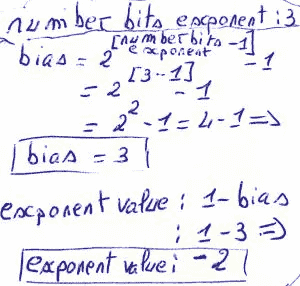 number bits exponent : 3
bias = 2^[number bits exponent - 1] - 1
= 2^[3 - 1] - 1
= 2^2 - 1 = 4 - 1 =>
bias = 3
exponent value : 1 - bias
: 1 - 3 =>
exponent value : - 2